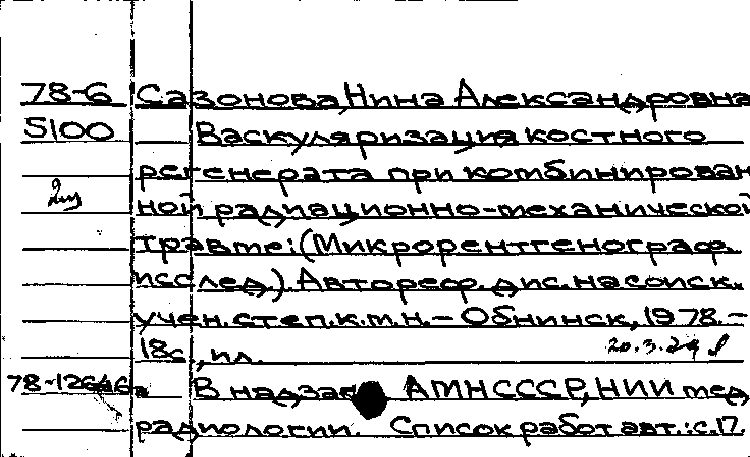 78-6 Сазонова, Нина Александровна
5100 Васкуляризация костного
регенерата при комбинирован
ной радиационно-механической
травме: (Микрорентгенограф.
исслед.). Автореф. дис. на соиск.
учен. степ. к. т. н. - Обнинск, 1978. -
18с., ил.
78-12646а В надзаг АМНСССР, НИИ мед.
радиологии. Список работ авт.: с. П.